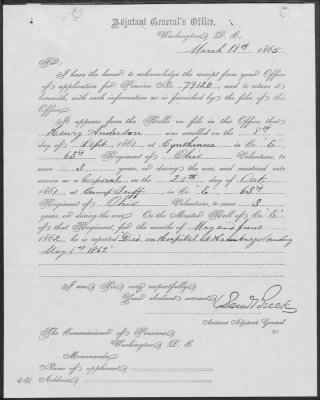 Adjutant General's Office,
Washington, D. C.
March 18th 1865
Sir:
I have the honor to acknowledge the receipt from your Office
of application for Pension No. 79122, and to return it
herewith, with such information as is furnished by the files of this
Office.
It appears from the Rolls on file in this Office, that
Henry Anderson was enrolled on the 8th
day of Sept. 1861 at Cynthiana in Co. E.
63rd Regiment of Ohio Volunteers, to
serve 3 years, or during the war, and mustered into
service as a Corporal on the 25th day of Oct.
1861 at Camp in Co. "E" 63rd
Regiment of Ohio Volunteers, to serve 3
years, or during the war. On the Muster Roll of Co. "E"
of that Regiment, for the months of May and June
1862, he is reported Died in Hospital at Hamburg Landing
May 1st 1862
I am Sir, very respectfully
Your obedient servant,
Saml Breck
Assistant Adjutant General.
The Commissioner of Pensions
Washington, D. C.
Memoranda:
Name of applicant
Address